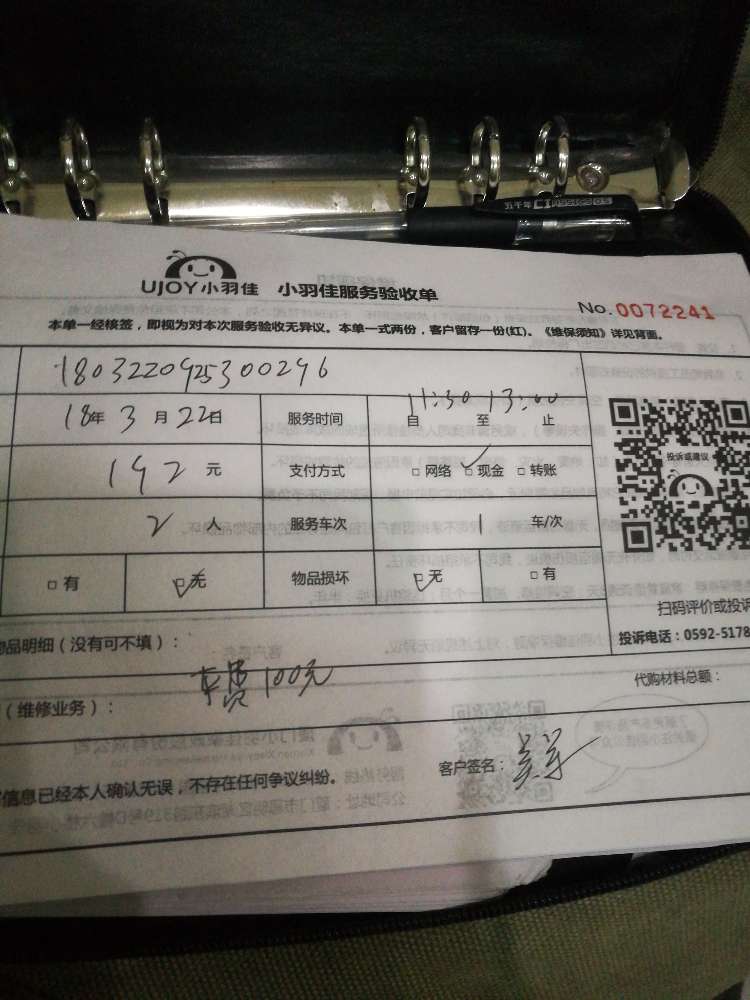 五千年
UJOY小羽佳 小羽佳服务验收单
No.0072241
本单一经核签，即视为对本次服务验收无异议。本单一式两份，客户留存一份(红)。《维保须知》详见背面。
1803220925300296
18年 3 月 22日 服务时间 自 11:30 至 13:00 止
192 元 支付方式 □ 网络 ☑ 现金 □ 转账
投诉或建议
2 人 服务车次 1 车/次
□ 有 ☑ 无 物品损坏 ☑ 无 □ 有
扫码评价或投诉
投诉电话：0592-5178
物品明细（没有可不填）：
车费100元
代购材料总额：
（维修业务）：
客户签名：
信息已经本人确认无误，不存在任何争议纠纷。